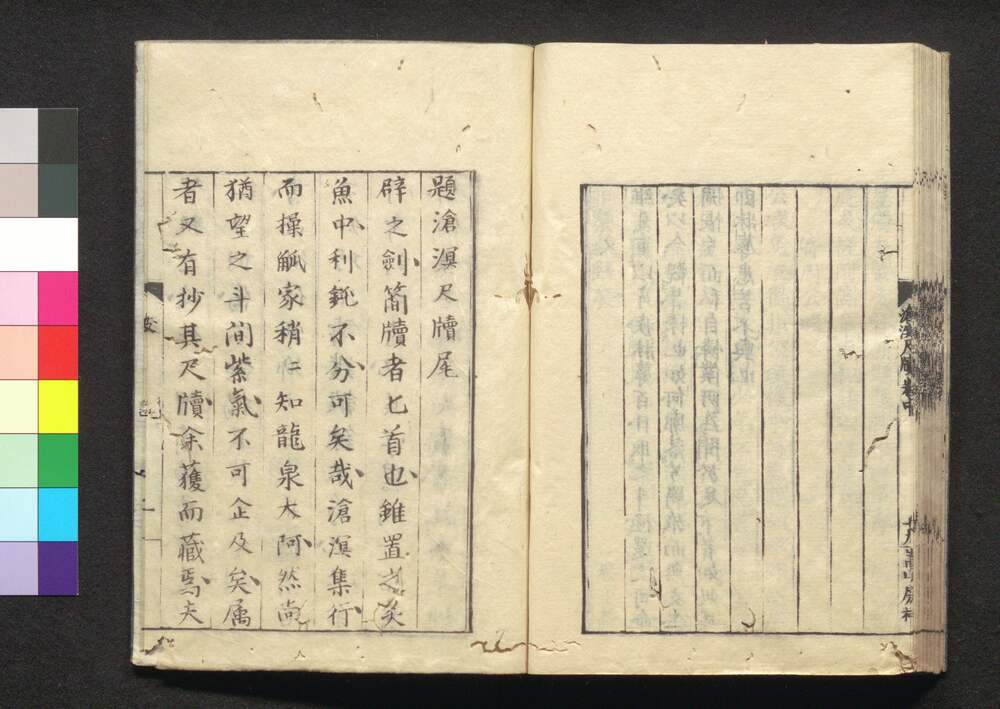 題滄溟尺牘尾
辟之劍簡牘者匕首也錐置之炙
魚中利鈍不分可矣哉滄溟集行
而操觚家稍〻知龍泉大阿然尚
猶望之斗間紫氣不可企及矣属
者又有抄其尺牘余獲而藏焉夫
滄溟尺牘卷中